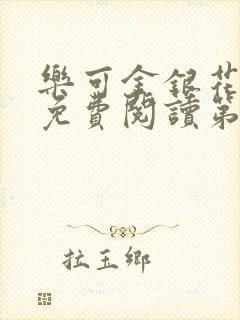 樂可金銀花
免費閱讀第
拉玉鄉